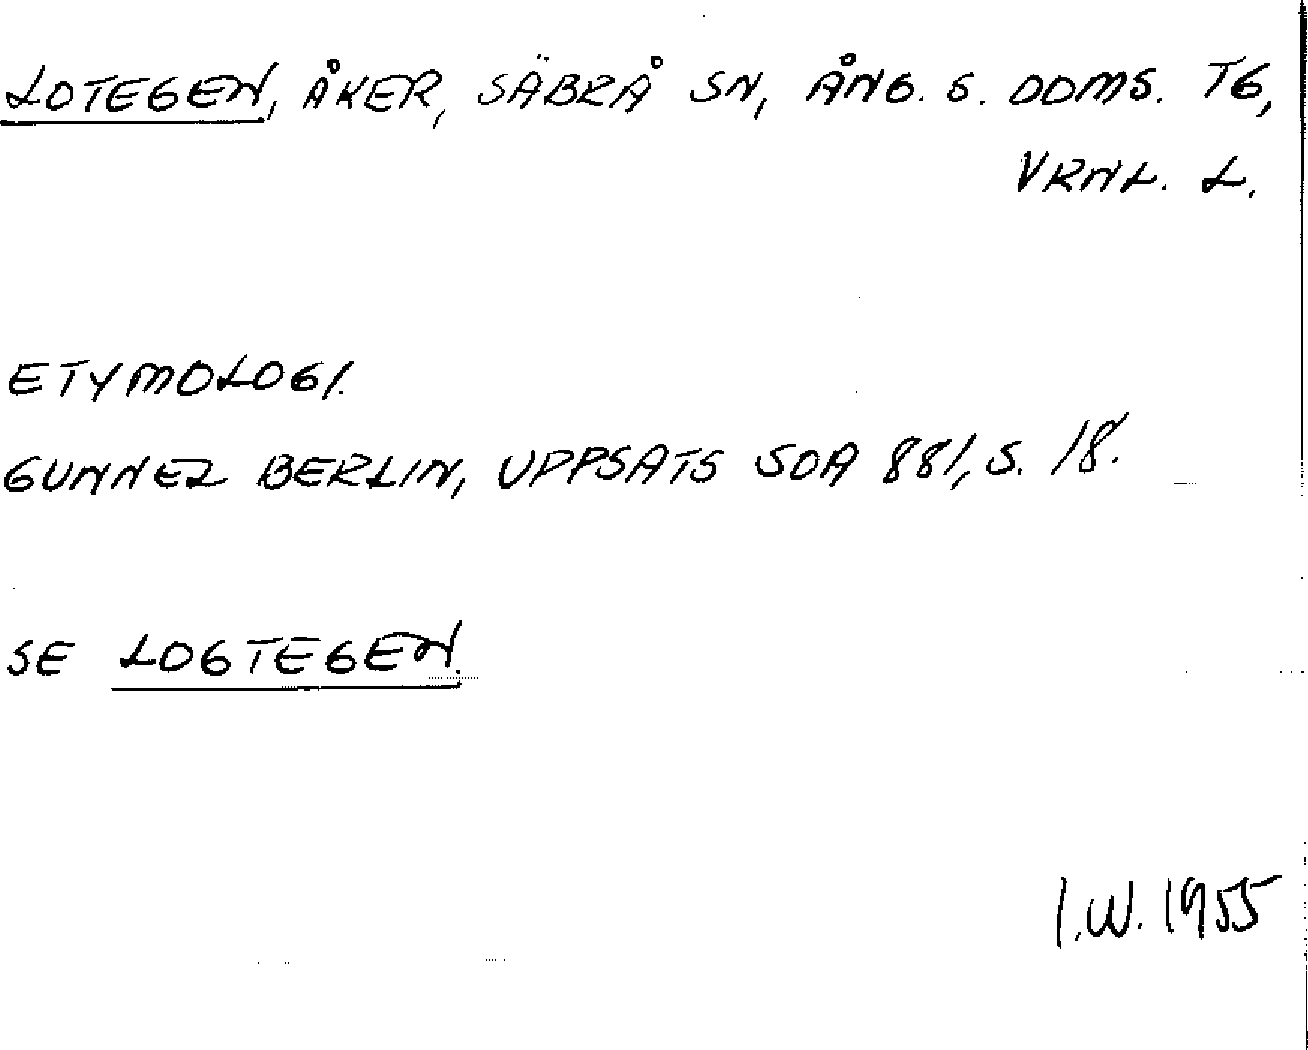 LOTEGEN, ÅKER, SÄBRÅ SN, ÅNG. S. DOMS. TG,
VRNL. L.
ETYMOLOGI.
GUNNEL BERLIN, UPPSATS SOA 881, S. 18.
SE LOGTEGEN.
I.W. 1955